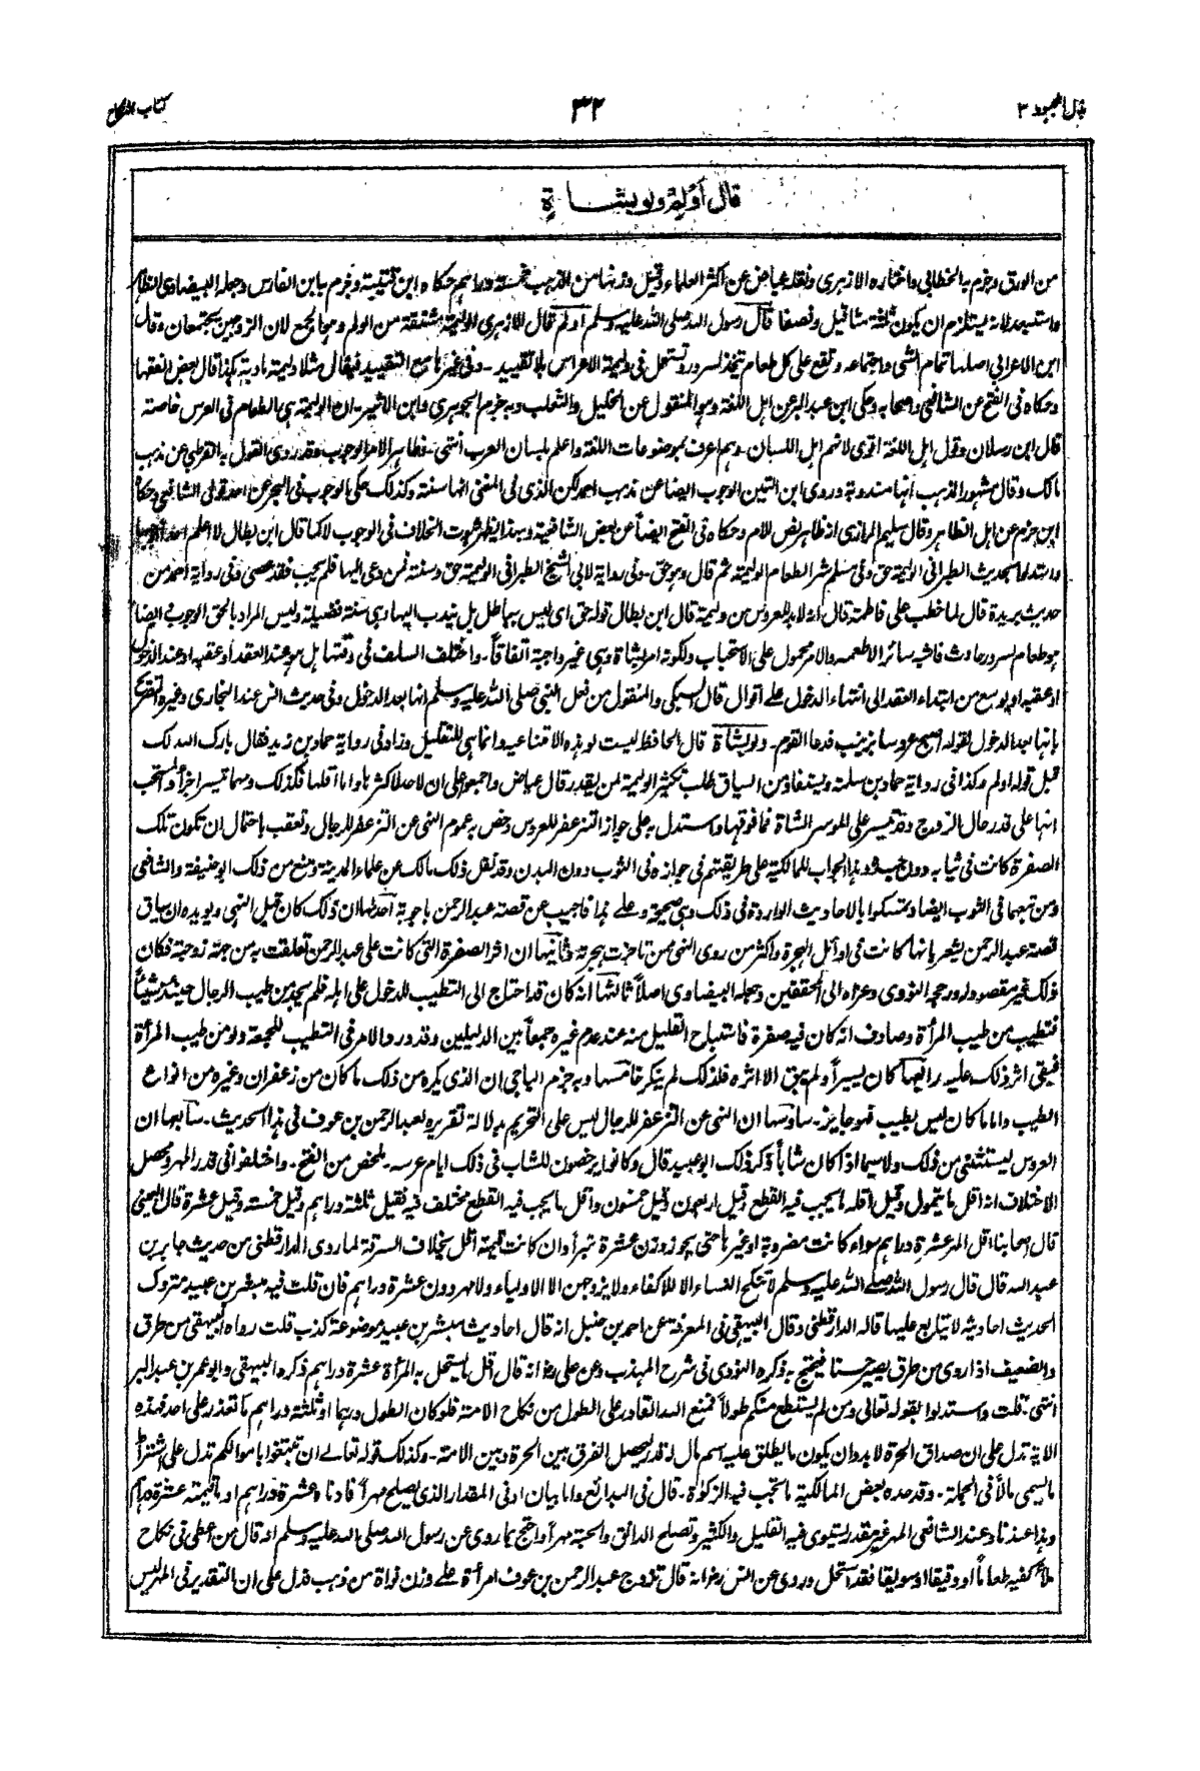 بذل المجهود ٣
٣٢
كتاب النكاح
قال أولم ولو بشاة
من الورق وجزم به الخطابي واختاره الازهري ونقله عياض عن أكثر العلماء وقيل وزنها من الذهب خمسة دراهم حكاه ابن قتيبة وجزم به ابن الفارس وجعله البيضاوي الظاهر
واستبعد لانه يستلزم ان يكون ثلثة مثاقيل ونصفا قال رسول الله صلى الله عليه وسلم أولم قال الازهري الوليمة مشتقة من الولم وهو الجمع لان الزوجين يجتمعان وقال
ابن الاعرابي اصلها تمام الشي واجتماعه وتقع على كل طعام يتخذ لسرور وتستعمل في وليمة الاعراس بلا تقييد - وفي غيرها مع التقييد فيقال مثلا وليمة مادبة هكذا قال بعض الفقهاء
وحكاه في الفتح عن الشافعي واصحابه وحكى ابن عبد البر عن اهل اللغة وهو المنقول عن الخليل والثعلب وبه جزم الجوهري وابن الاثير - ان الوليمة هي بالطعام في العرس خاصة
قال ابن رسلان وقول اهل اللغة اقوى لانهم اهل اللسان - وهم اعرف بموضوعات اللغة واعلم بلسان العرب انتهى - فظاهر الامر الوجوب وقد روى القول به القرطبي عن مذهب
مالك وقال مشهور المذهب أنها مندوبة وروى ابن التين الوجوب ايضا عن مذهب احمد لكن الذي في المغني انها سنة وكذلك حكى الوجوب في البحر عن احد قولي الشافعي وحكاه
ابن حزم عن اهل الظاهر وقال سليم الرازي انه ظاهر نص الام وحكاه في الفتح ايضاً عن بعض الشافعية وبهذا يظهر ثبوت الخلاف في الوجوب لا كما قال ابن بطال لا اعلم احدا أوجبها
واستدلوا بحديث الطبراني الوليمة حق وفي مسلم شر الطعام الوليمة ثم قال وهو حق - وفي رواية لابي الشيخ الطبراني الوليمة حق وسنة فمن دعى اليها فلم يجب فقد عصى وفي رواية احمد من
حديث بريدة قال لما خطب علي فاطمة قال انه لا بد للعروس من وليمة قال ابن بطال قوله حق اى ليس بباطل بل يندب اليها وهي سنة فضيلة وليس المراد بالحق الوجوب ايضا
هو طعام لسرور حادث فاشبه سائر الاطعمة والامر محمول على الاستحباب ولكونه امر بشاة وهي غير واجبة اتفاقاً - واختلف السلف في وقتها هل هو عند العقد أو عقبه او عند الدخول
او عقبه او يوسع من ابتداء العقد الى انتهاء الدخول على اقوال قال السبكي والمنقول من فعل النبي صلى الله عليه وسلم انها بعد الدخول وفي حديث انس عند البخاري وغيره التصريح
بانها بعد الدخول لقوله اصبح عروسا بزينب فدعا القوم - ولو بشاة قال الحافظ ليست لو هذه الامتناعية وانما هي للتقليل وزاد في رواية حماد بن زيد فقال بارك الله لك
قبل قوله اولم وكذا في رواية حماد بن سلمة ويستفاد من السياق طلب تكثير الوليمة لمن يقدر قال عياض واجمعوا على ان لا حد لاكثرها واما اقلها فكذلك ومهما تيسر اجزأ والمستحب
انها على قدر حال الزوج وقد تيسر على الموسر الشاة فما فوقها واستدل به على جواز التزعفر للعروس وخص به عموم النهي عن التزعفر للرجال وتعقب باحتمال ان تكون تلك
الصفرة كانت في ثيابه دون جسده وهذا الجواب للمالكية على طريقتهم في جوازه في الثوب دون البدن وقد نقل ذلك مالك عن علماء المدينة ومنع من ذلك ابو حنيفة والشافعي
ومن تبعهما في الثوب ايضا وتمسكوا بالاحاديث الواردة في ذلك وهي صحيحة وعلى هذا فاجيب عن قصة عبد الرحمن باجوبة احدها ان ذلك كان قبل النهي ويؤيده ان سياق
قصة عبد الرحمن يشعر بانها كانت في اوائل الهجرة واكثر من روى النهي ممن تاخرت هجرته وثانيها ان اثر الصفرة التي كانت على عبد الرحمن تعلقت به من جهة زوجته فكان
ذلك غير مقصود له ورجحه النووي وعزاه الى المحققين وجعله البيضاوي اصلاً ثالثها انه كان قد احتاج الى التطيب للدخول على اهله فلم يجد من طيب الرجال حينئذ شيئاً
فتطيب من طيب المرأة وصادف انه كان فيه صفرة فاستباح القليل منه عند عدم غيره جمعاً بين الدليلين وقد ورد الامر في التطيب للجمعة ولو من طيب المرأة
فبقي اثر ذلك عليه رابعها كان يسيراً ولم يبق الا اثره فلذلك لم ينكر خامسها وبه جزم الباجي ان الذي يكره من ذلك ما كان من زعفران وغيره من انواع
الطيب واما ما كان ليس بطيب فهو جايز - سادسها ان النهي عن التزعفر للرجال ليس على التحريم بدلالة تقريره لعبد الرحمن بن عوف في هذا الحديث - سابعها ان
العروس يستثنى من ذلك ولا سيما اذا كان شاباً ذكر ذلك ابو عبيد قال وكانوا يرخصون للشاب في ذلك ايام عرسه - ملخص من الفتح - واختلفوا في قدر المهر ومحصل
الاختلاف انه اقل ما يتمول وقيل اقله ما يجب فيه القطع وقيل اربعون وقيل خمسون وأقل ما يجب فيه القطع مختلف فيه فقيل ثلثة دراهم وقيل خمسة وقيل عشرة قال العيني
قال اصحابنا اقل المهر عشرة دراهم سواء كانت مضروبة او غيرها حتى يجوز وزن عشرة تبراً وان كانت قيمته اقل بخلاف السرقة لما روى الدارقطني من حديث جابر بن
عبد الله قال قال رسول الله صلى الله عليه وسلم لا تنكح النساء الا للاكفاء ولا يزوجهن الا الاولياء ولا مهر دون عشرة دراهم فان قلت فيه مبشر بن عبيد متروك
الحديث احاديثه لا يتابع عليها قاله الدارقطني وقال البيهقي في المعرفة عن احمد بن حنبل انه قال احاديث مبشر بن عبيد موضوعة كذب قلت رواه البيهقي من طرق
والضعيف اذا روى من طرق يصير حسنا فيحتج به ذكره النووي في شرح المهذب وعن علي رض انه قال أقل ما يستحل به المرأة عشرة دراهم ذكره البيهقي وابو عمر بن عبد البر
انتهى - قلت واستدلوا بقوله تعالى ومن لم يستطع منكم طولاً فمنع الله القادر على الطول من نكاح الامة فلو كان الطول درهما او ثلثة دراهم ما تعذر على احد فهذه
الاية تدل على ان صداق الحرة لا بد وان يكون ما يطلق عليه اسم مال له قدر ليحصل الفرق بين الحرة وبين الامة - وكذلك قوله تعالى ان تبتغوا باموالكم تدل على اشتراط
ما يسمى مالاً في الجملة - وقد حده بعض المالكية بما تجب فيه الزكوة - قال في البدائع واما بيان ادنى المقدار الذي يصلح مهراً فادناه عشرة دراهم او ما قيمته عشرة دراهم
وهذا عندنا وعند الشافعي المهر غير مقدر يستوي فيه القليل والكثير وتصلح الدانق والحبة مهراً واحتج بما روى عن رسول الله صلى الله عليه وسلم انه قال من اعطى في نكاح
ملأ كفيه طعاماً او دقيقا او سويقا فقد استحل وروى عن انس رض انه قال تزوج عبد الرحمن بن عوف امرأة على وزن نواة من ذهب فدل على ان التقدير في المهر ليس